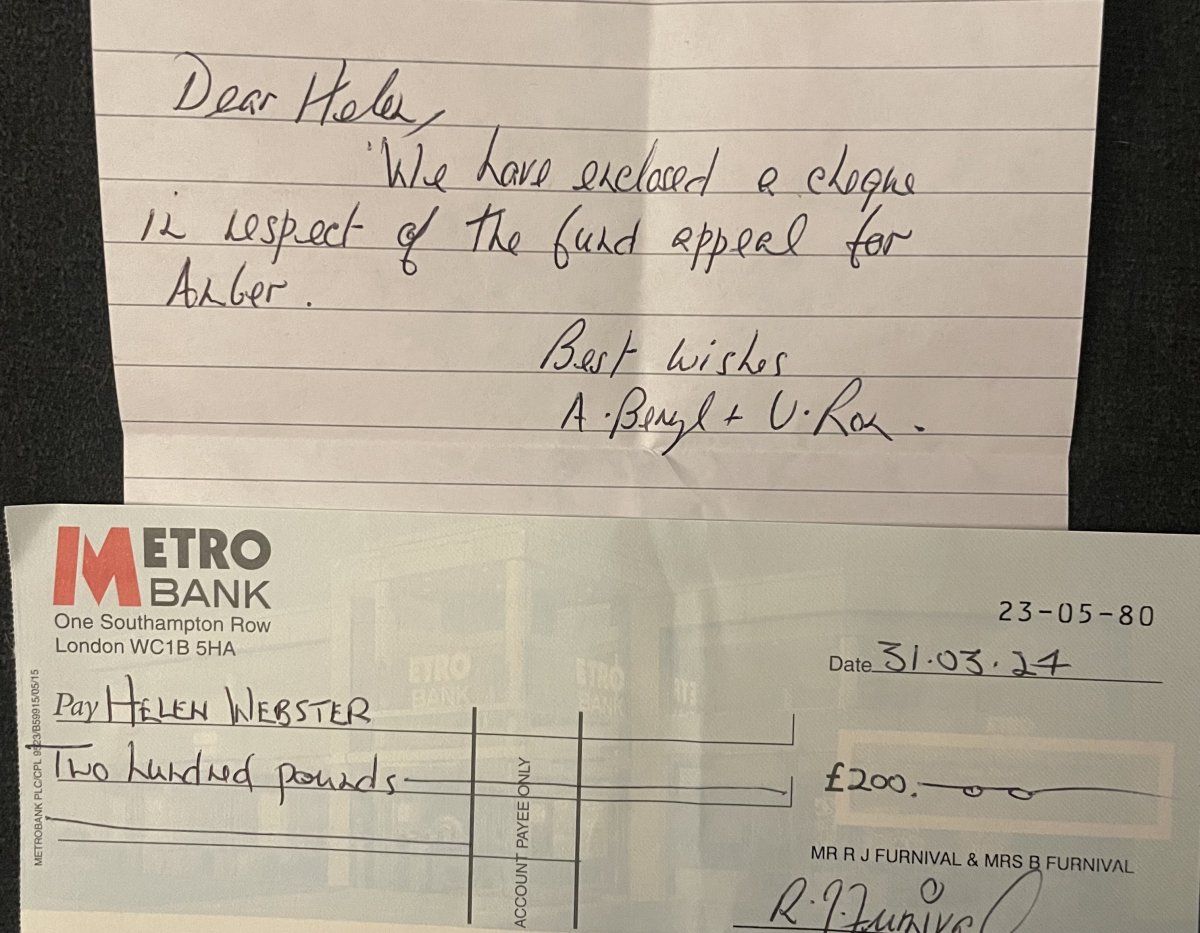 Dear Helen,
We have enclosed a cheque
in respect of the fund appeal for
Amber.
Best wishes
A. Beryl + U. Ron.
METRO
BANK
One Southampton Row
London WC1B 5HA
23-05-80
Date 31.03.24
Pay HELEN WEBSTER
Two hundred pounds
£200.00
ACCOUNT PAYEE ONLY
METROBANK PLC/CPL 9523/B59915/05/15
MR R J FURNIVAL & MRS B FURNIVAL
R.J. Furnival